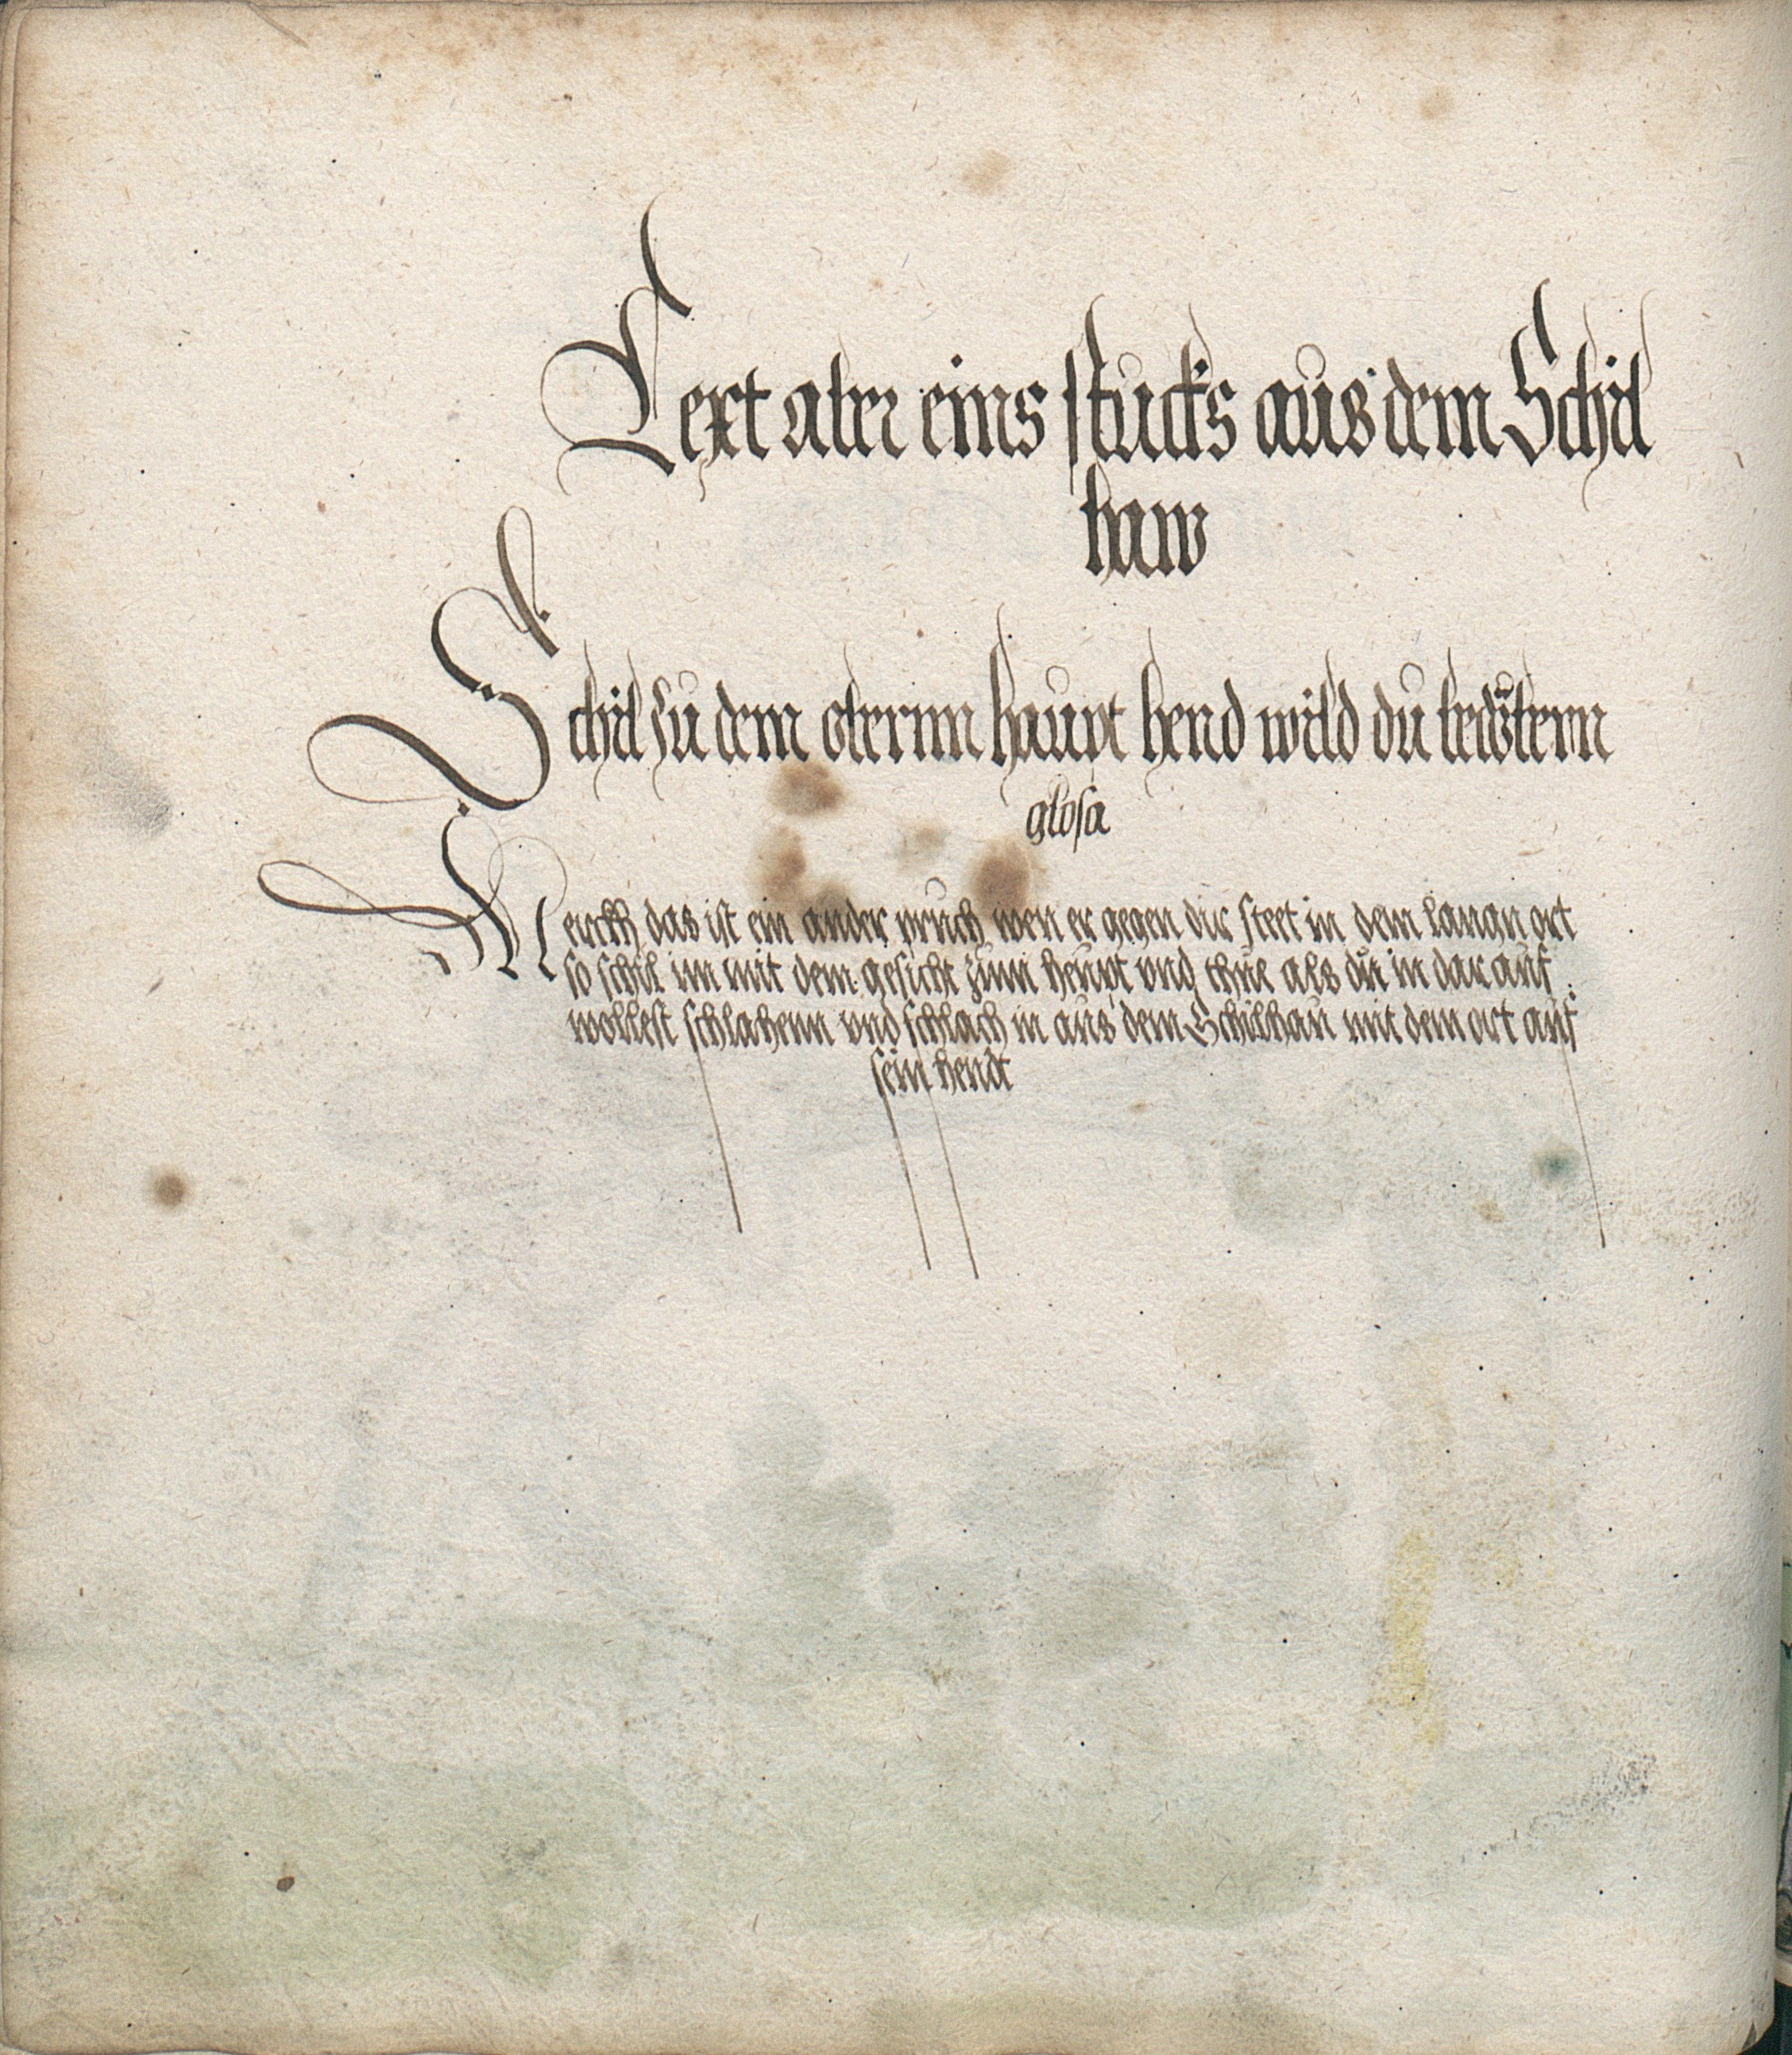 Text aber eins stucks aus dem Schil
haw
Schil zu dem obernn haupt hend wild du bedebernn
glosa
Merckh das ist ein ander pruch wen er gegen dir steet in dem langn ort
so schil im mit dem gesicht zum heupt vnd thue als du in dar auf
wollest schlahenn vnd schlach in aus dem Schilhau mit dem ort auf
sein hendt